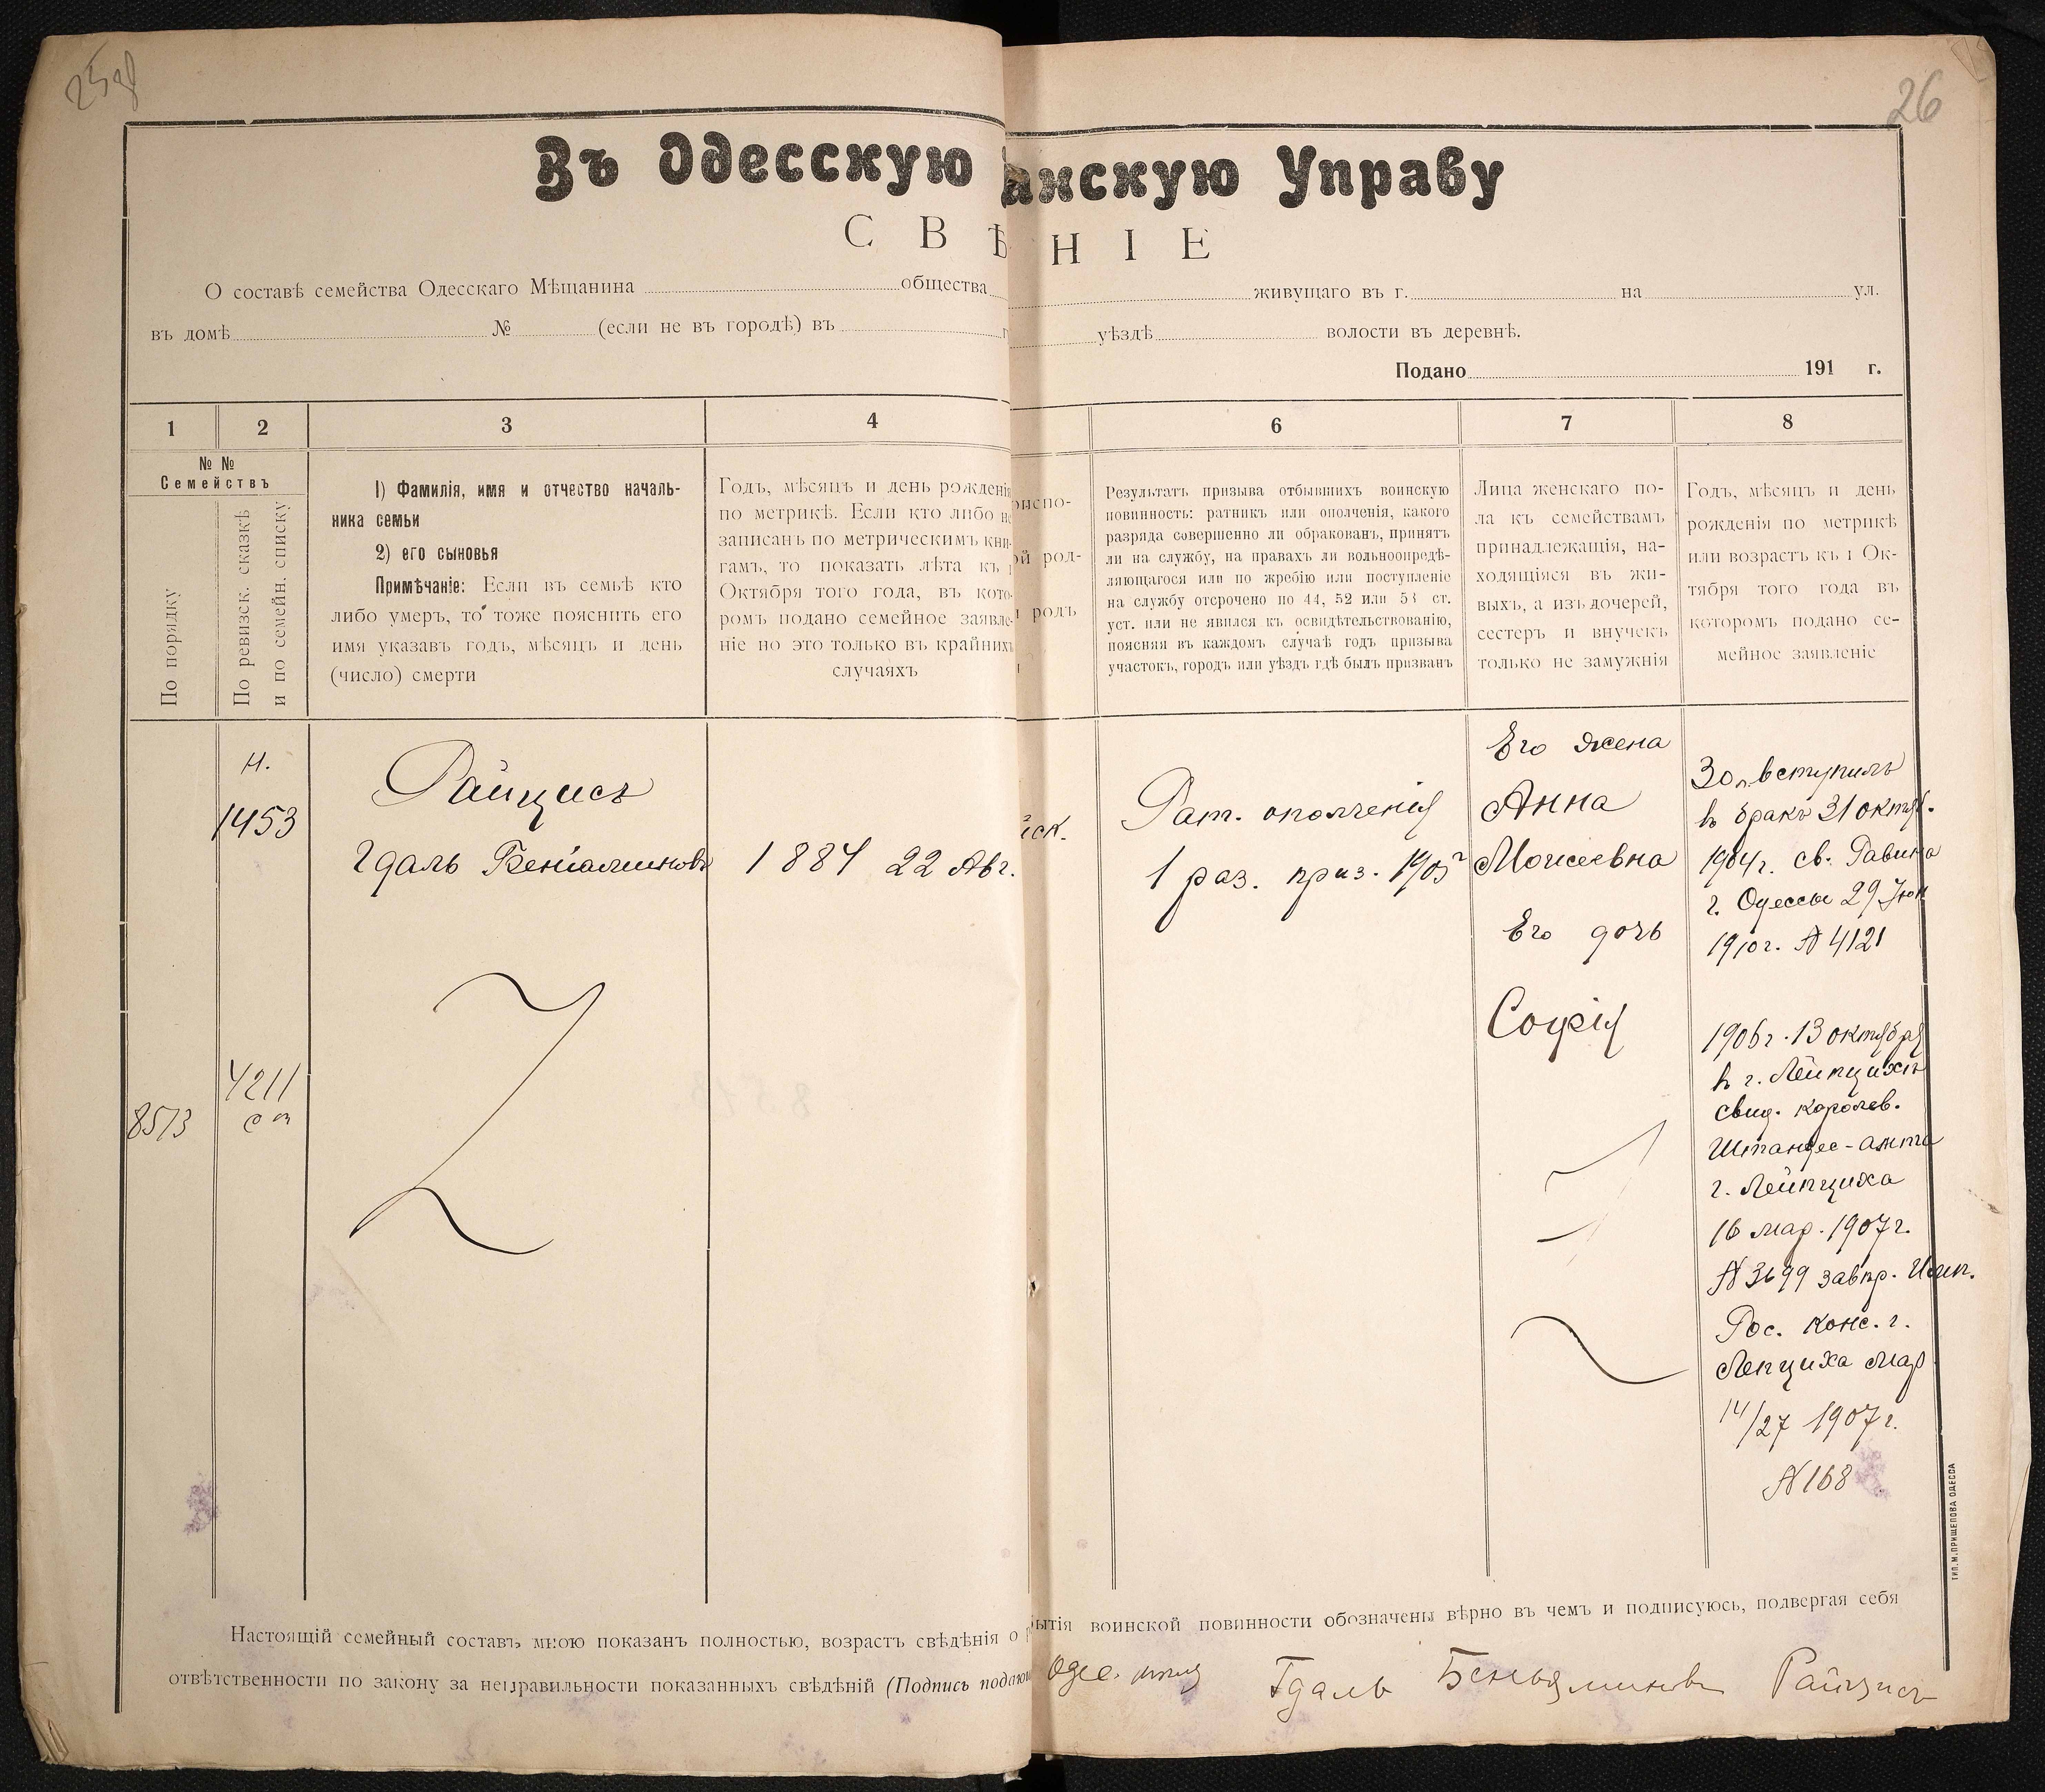 25
26
Въ Одесскую
анскую Управу
С В Ѣ
Н І Е
О составѣ семейства Одесскаго Мѣщанина общества
живущаго въ г. на ул.
въ домѣ № (если не въ городѣ) въ
уѣздѣ волости въ деревнѣ.
Подано 191 г.
1 2 3 4
6 7 8
№ №
Семействъ
По порядку
По ревизск. сказкѣ
и по семейн. списку
1) Фамилія, имя и отчество началь-
ника семьи
2) его сыновья
Примѣчаніе: Если въ семьѣ кто
либо умеръ, то тоже пояснить его
имя указавъ годъ, мѣсяцъ и день
(число) смерти
Годъ, мѣсяцъ и день рожденія
по метрикѣ. Если кто либо не
записанъ по метрическимъ кни-
гамъ, то показать лѣта къ 1
Октября того года, въ кото-
ромъ подано семейное заявле-
ніе но это только въ крайнихъ
случаяхъ
испо-
ой род-
родъ
Результатъ призыва отбывшихъ воинскую
повинность: ратникъ или ополченія, какого
разряда совершенно ли обракованъ, принятъ
ли на службу, на правахъ ли вольноопредѣ-
ляющагося или по жребію или поступленіе
на службу отсрочено по 44, 52 или 53 ст.
уст. или не явился къ освидѣтельствованію,
поясняя въ каждомъ случаѣ годъ призыва
участокъ, городъ или уѣздъ гдѣ былъ призванъ
Лица женскаго по-
ла къ семействамъ
принадлежащія, на-
ходящіяся въ жи-
выхъ, а изъ дочерей,
сестеръ и внучекъ
только не замужнія
Годъ, мѣсяцъ и день
рожденія по метрикѣ
или возрастъ къ 1 Ок-
тября того года въ
которомъ подано се-
мейное заявленіе
н.
1453
4211
8513
Райцисъ
Гдаль Беніаминовъ
1884 22 Авг.
ск.
Рат. ополченія
1 раз. приз. 1905 г
Его жена
Анна
Моисеевна
Его дочь
Софія
30 л вступилъ
въ бракъ 31 октяб.
1904 г. св. Равина
г. Одессы 29 Іюн
1910 г. № 4121
1906 г. 13 октября
въ г. Лейпцихѣ
свид. королев.
Штандес-амта
г. Лейпциха
16 мар. 1907 г.
№ 3699 завѣр. Имп.
Рос. конс. г.
Лепциха мар
14/27 1907 г.
№ 168
Настоящій семейный составъ мною показанъ полностью, возрастъ свѣдѣнія о
ытія воинской повинности обозначены вѣрно въ чемъ и подписуюсь, подвергая себя
отвѣтственности по закону за неправильности показанныхъ свѣдѣній (Подпись подаю
Одес. мѣщ Гдаль Беньяминовъ Райцисъ
ТИП. М. ПРИЩЕПОВА ОДЕССА